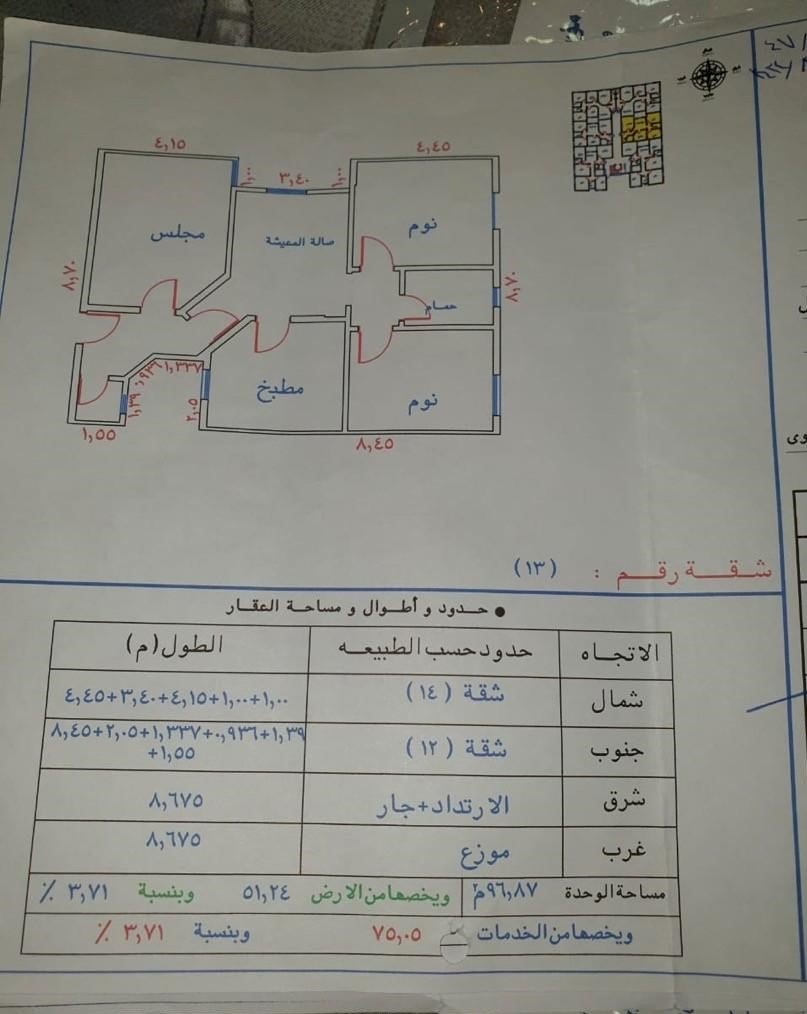 ٤,١٥
٤,٤٥
١,٠٠
٣,٤٠
١,٠٠
مجلس
صالة المعيشة
نوم
٨,٧٠
حمام
٨,٧٠
١,٣٣٧
٠,٩٣٦
١,٣٩
٢,٠٥
مطبخ
نوم
١,٥٥
٨,٤٥
شقة رقم : (١٣)
• حدود و أطوال و مساحة العقار
الاتجاه حدود حسب الطبيعه الطول (م)
شمال شقة (١٤) ٤,٤٥+٣,٤٠+٤,١٥+١,٠٠+١,٠٠
جنوب شقة (١٢) ٨,٤٥+٢,٠٥+١,٣٣٧+٠,٩٣٦+١,٣٩
+١,٥٥
شرق الارتداد+جار ٨,٦٧٥
غرب موزع ٨,٦٧٥
مساحة الوحدة ٩٦,٨٧م٢ ويخصها من الارض ٥١,٢٤ وبنسبة ٣,٧١ %
ويخصها من الخدمات ٧٥,٠٥ وبنسبة ٣,٧١ %